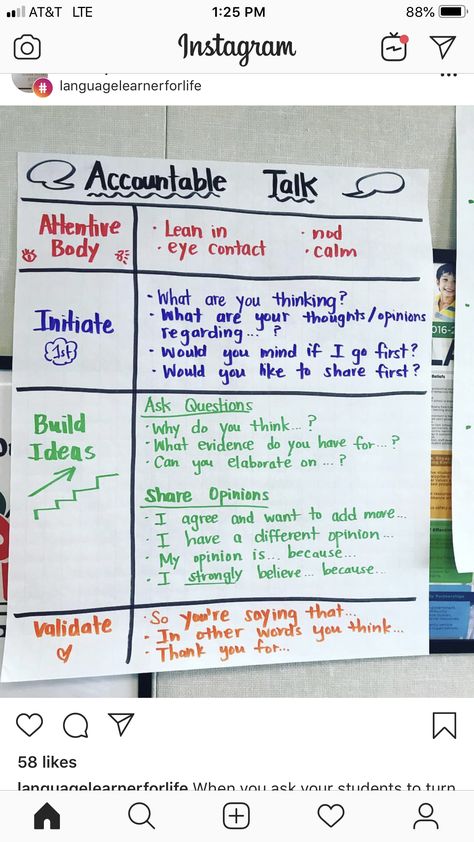 AT&T LTE
1:25 PM
88%
Instagram
languagelearnerforlife
Accountable Talk
Attentive
Body
• Lean in
• nod
• eye contact
• calm
Initiate
1st
• What are you thinking?
• What are your thoughts/opinions
regarding... ?
• Would you mind if I go first?
• Would you like to share first?
Build
Ideas
Ask Questions
• Why do you think... ?
• What evidence do you have for... ?
• Can you elaborate on ... ?
Share Opinions
• I agree and want to add more...
• I have a different opinion...
• My opinion is... because...
• I strongly believe... because...
Validate
• So you're saying that...
• In other words you think...
• Thank you for...
58 likes
languagelearnerforlife When you ask your students to turn